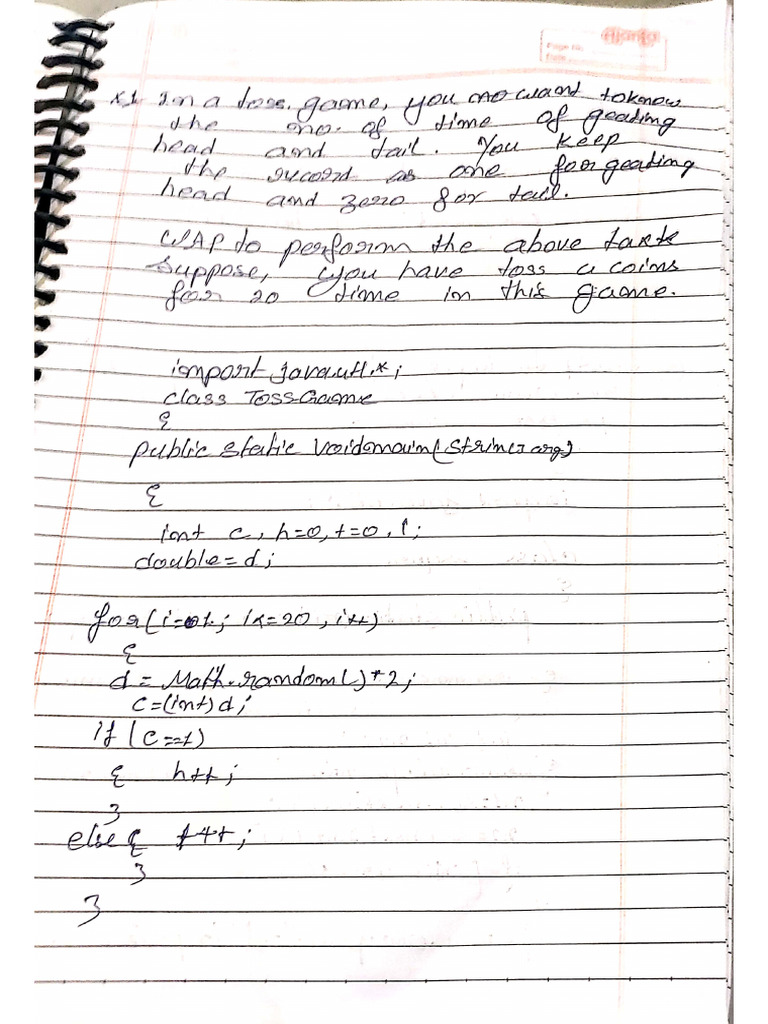 In a toss game, you mo want toknow
the mo. of time of geating
head and tail. You keep
the record as one for geating
head and zero for tail.
WAP to perform the above task
Suppose, you have toss a coins
for 20 time in this game.
import java.util.*;
class TossGame
{
public static voidmain(String arg)
{
int c, h=0, t=0, i;
double=d;
for(i=01; i<=20, i++)
{
d = Math.random()*2;
c=(int)d;
if (c==1)
{ h++;
}
else { t++;
}
}